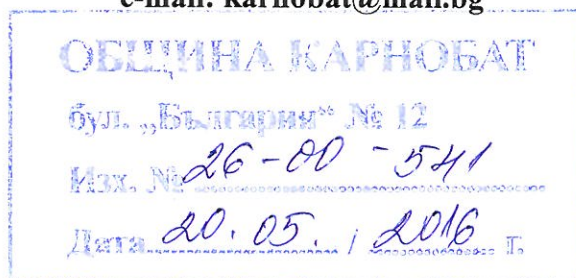 e-mail: karnobat@mail.bg
ОБЩИНА КАРНОБАТ
бул. „България“ № 12
Изх. № 26-00-541
Дата 20.05. / 2016 г.